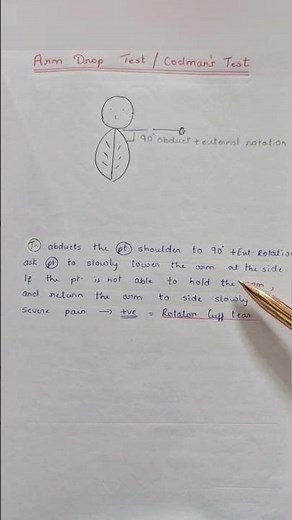 Arm Drop Test / Codman's Test
90° abduct + external rotation
Th abducts the pt shoulder to 90° + Ext. Rotation
ask pt to slowly lower the arm at the side.
If the pt is not able to hold the arm,
and return the arm to side slowly
severe pain → +ve = Rotator Cuff tear